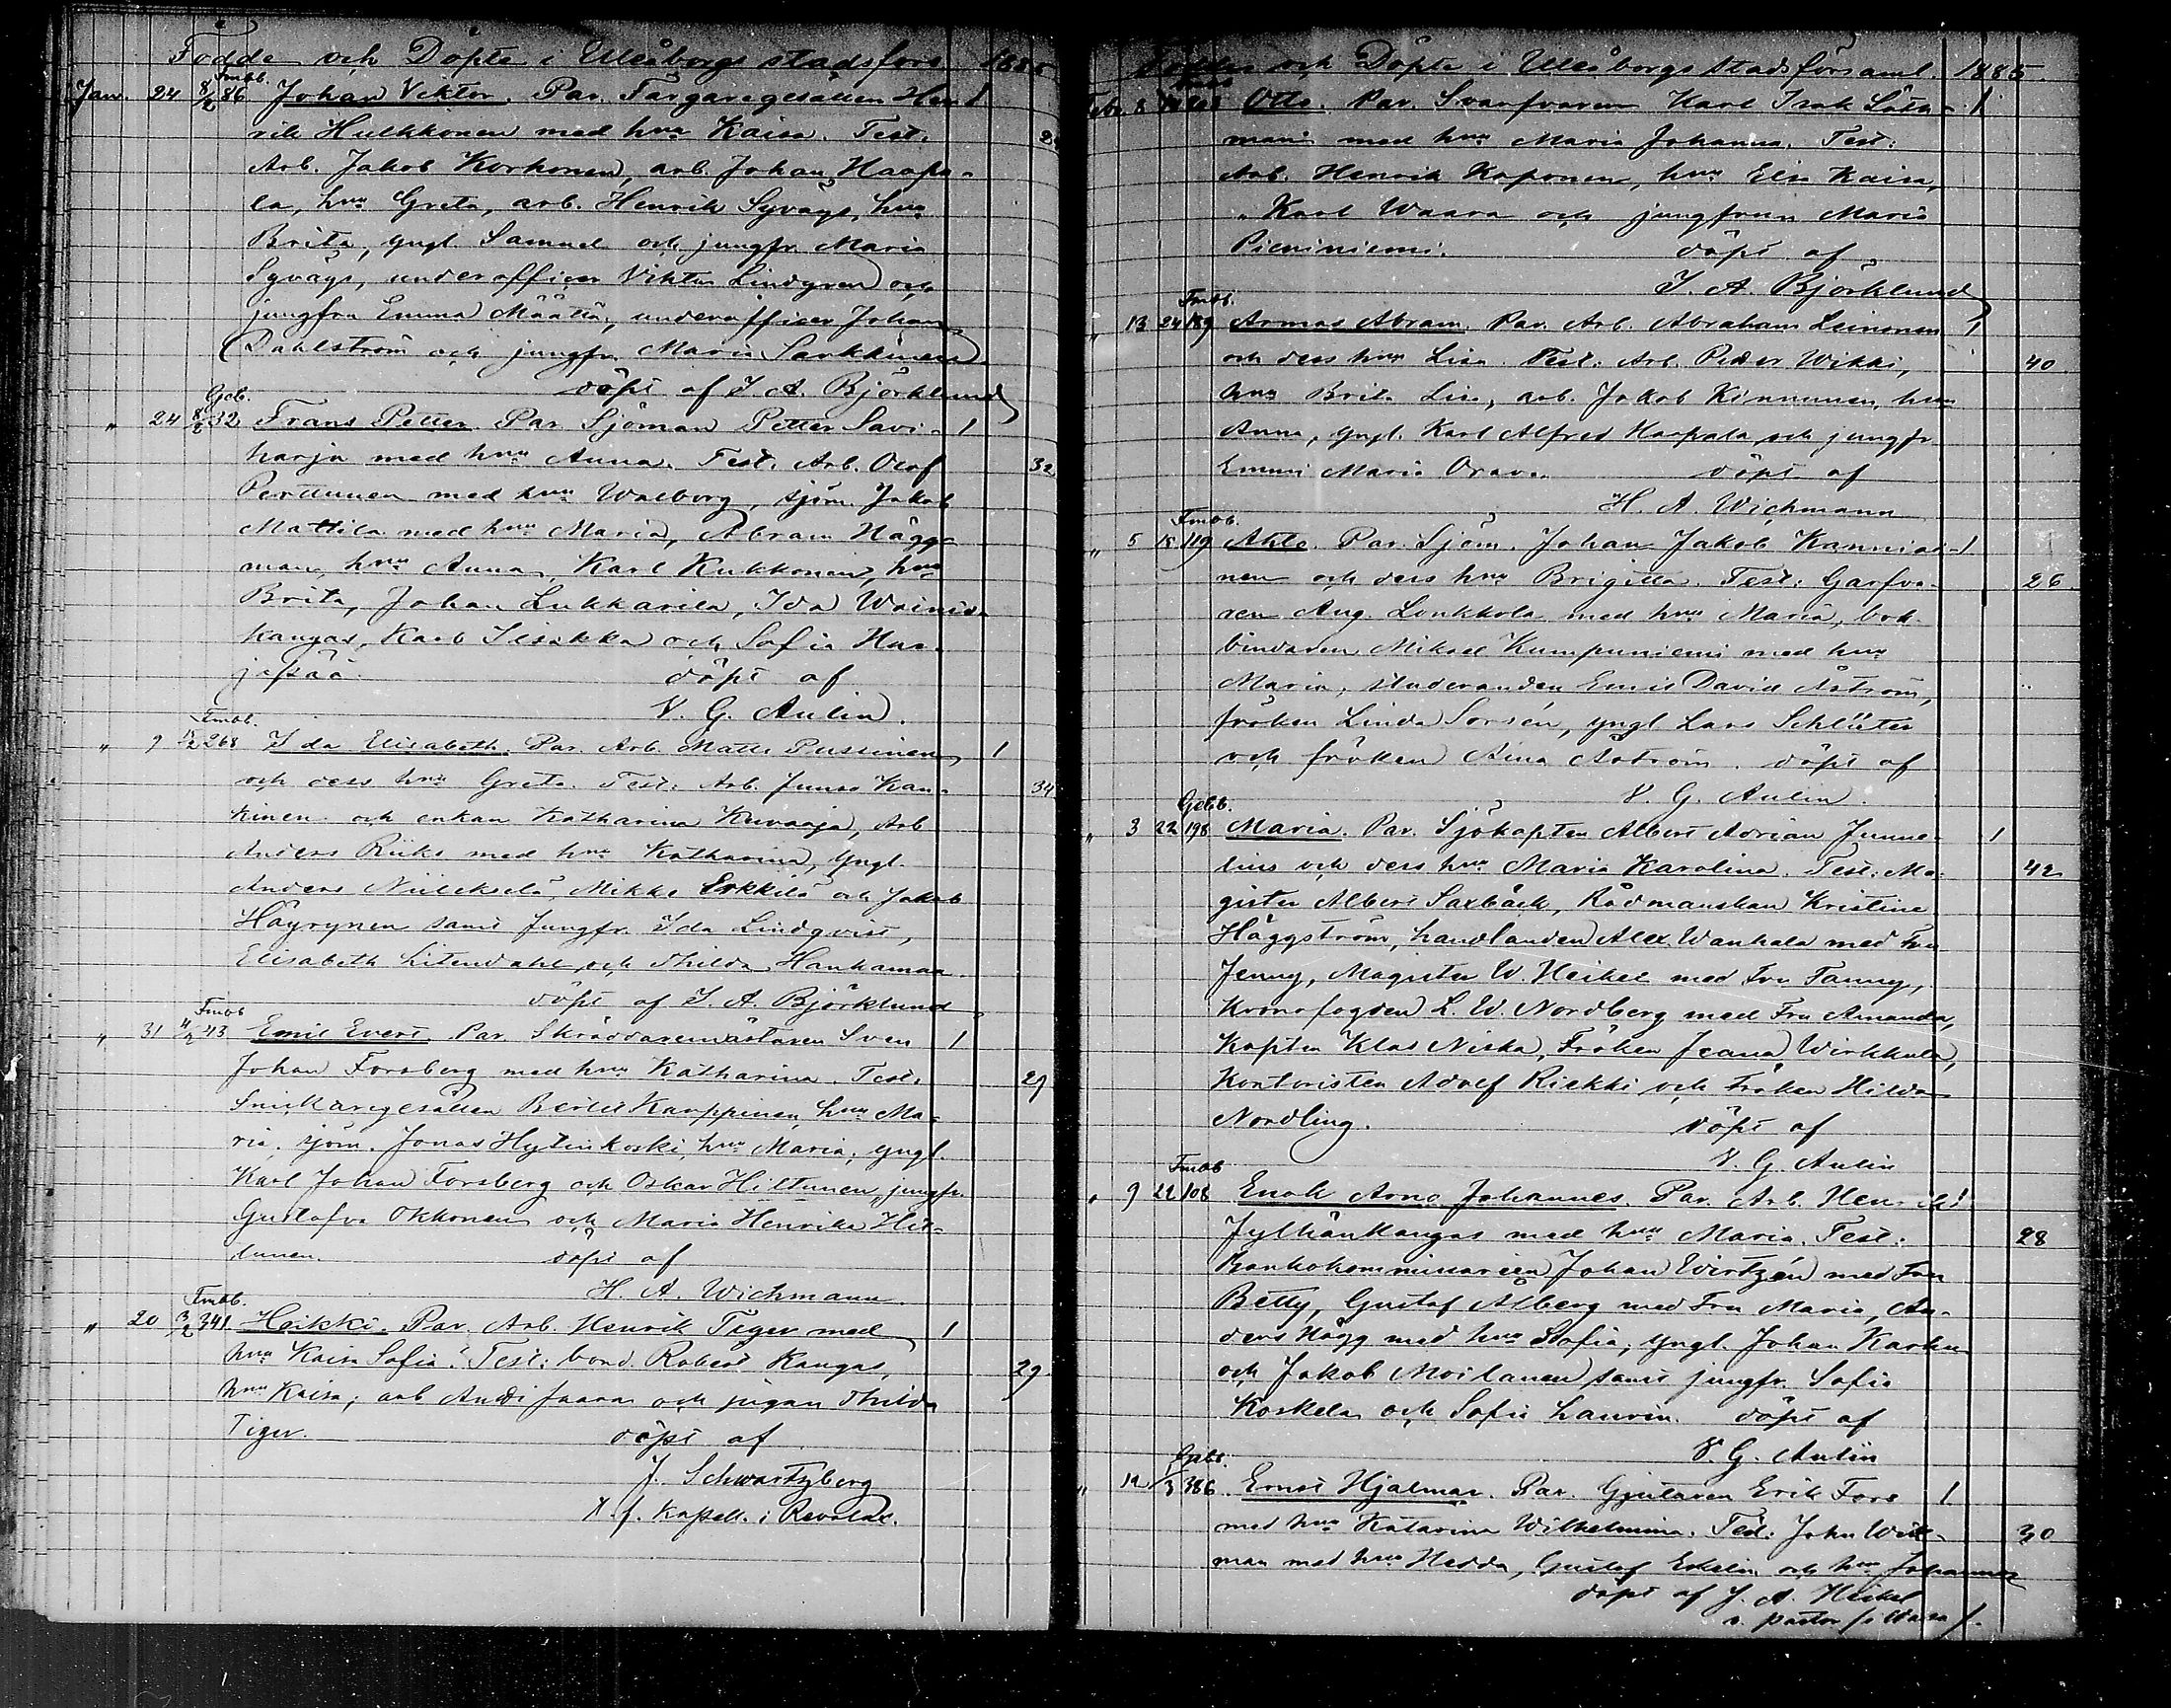 Födde och Döpte i Uleåborgs stadsförs 1885
Fmbb.
Jan. 24 8/2 86 Johan Viktor. Par. Färgaregesällen Hen- 1
rik Hulkkonen med hru Kaisa. Test.
Arb. Jakob Korhonen, arb. Johan Haapa-
la, hru Greta, arb. Henrik Syväys, hru
Brita, yngl. Samuel och jungfr. Maria
Syväys, underofficer Viktor Lindgren och
jungfru Emma Määttä, underofficer Johan
Dahlström och jungfr. Maria Sarkkinen
döpt af J. A. Björklund
Geb.
" 24 8/2 32 Frans Petter. Par. Sjöman Petter Savi- 1
harju med hru Anna. Test. Arb. Olof 32
Perttunen med hru Walborg, sjöm. Jakob
Mattila med hru Maria, Abram Hägg-
man, hru Anna, Karl Kukkonen, hru
Brita, Johan Lukkarila, Ida Wainion-
kangas, Karl Iisakka och Sofia Har-
jupää. döpt af
V. G. Aulin.
Fmbb.
" 9 15/2 268 Ida Elisabeth. Par. Arb. Matts Pussinen 1
och dess hru Greta. Test. Arb. Junas Kan- 34
kinen och enkan Katharina Kuvaaja, Arb
Anders Riiki med hru Katharina, yngl.
Anders Niilekselä, Mikko Erkkilä och Jakob
Häyrynen samt Jungfr. Ida Lindqvist,
Elisabeth Litendahl och Thilda Hankamaa.
döpt af J. A. Björklund
Fmbb
" 31 4/2 43 Emil Evert. Par. Skräddaremästaren Sven 1
Johan Forsberg med hru Katharina. Test. 29
Snickaregesällen Bertil Karppinen, hru Ma-
ria, sjöm. Jonas Hytinkoski, hru Maria, yngl.
Karl Johan Forsberg och Oskar Hiltunen, jungfr.
Gustafva Okkonen och Maria Henrika Hil-
tunen. döpt af
H. A. Wichmann.
Fmbb.
" 20 3/2 341 Heikki. Par. Arb. Henrik Tiger med 1
hru Kaisa Sofia. Test: bond. Robert Kangas, 29.
hru Kaisa, arb Antti Jaara och pigan Thilda
Tiger. döpt af
J. Schwartzberg
v. f. kapell. i Revolax.
Födde och Döpte i Uleåborgs stadsförsaml. 1885.
Febr. 8 Otto. Par. Svarfvaren Karl Isak Säta- 1
mani med hru Maria Johanna. Test:
Arb. Henrik Koponen, hru Elsa Kaisa,
" Karl Waara och jungfrun Maria
Pieniniemi. döpt af
J. A. Björklund
Fmbb.
" 13 24 189 Armas Abram. Par. Arb. Abraham Leinonen 1
och dess hru Lisa. Test: Arb. Petter Wikki, 40
hru Brita Lisa, arb. Jakob Kinnunen, hru
Anna, yngl. Karl Alfred Haapala och jungfr
Emmi Maria Orava. döpt af
H. A. Wichmann
Fmbb.
" 5 15 119 Ahte. Par. Sjöm. Johan Jakob Kanniai- 1
nen och dess hru Brigitta. Test: Garfva- 26
ren Aug. Lonkkola med hru Maria, bok-
bindaren Mikael Kumpuniemi med hru
Maria, studeranden Emil David Åström,
fröken Linda Sorsén, yngl Lars Schlüter
och fröken Aina Åström. döpt af
V. G. Aulin.
Gebb.
" 3 22 198 Maria. Par. Sjökapten Albert Adrian Junne- 1
lius och dess hru Maria Karolina. Test. Ma- 42
gister Albert Saxbäck, Rådmanskan Kristine
Häggström, handlanden Alex. Wanhala med Fru
Jenny, Magister W. Heikel med Fru Fanny,
Kronofogden L. W. Nordberg med Fru Amanda,
Kapten Klas Niska, Fröken Jeana Wirkkula,
Kontoristen Adolf Riekki och Fröken Hilda
Nordling. döpt af
V. G. Aulin
Fmbb
" 9 22 108 Enok Arno Johannes. Par. Arb. Hen- rik 1
Jylhänkangas med hru Maria. Test: 28
Bankokommissarien Johan Wirtzén med Fru
Betty, Gustaf Ålberg med Fru Maria, An-
ders Hägg med hru Sofia, yngl. Johan Karhu
och Jakob Moilanen samt jungfr. Sofia
Koskela och Sofie Laurin. döpt af
V. G. Aulin
" 12 1/3 386. Ernst Hjalmar. Par. Gjutaren Erik Fors 1
med hru Katarina Wilhelmina. Test: John Wik- 30
man med hru Hedda, Gustaf Eklin och hru Johanna
döpt af J. A. Heikel
v. pastor